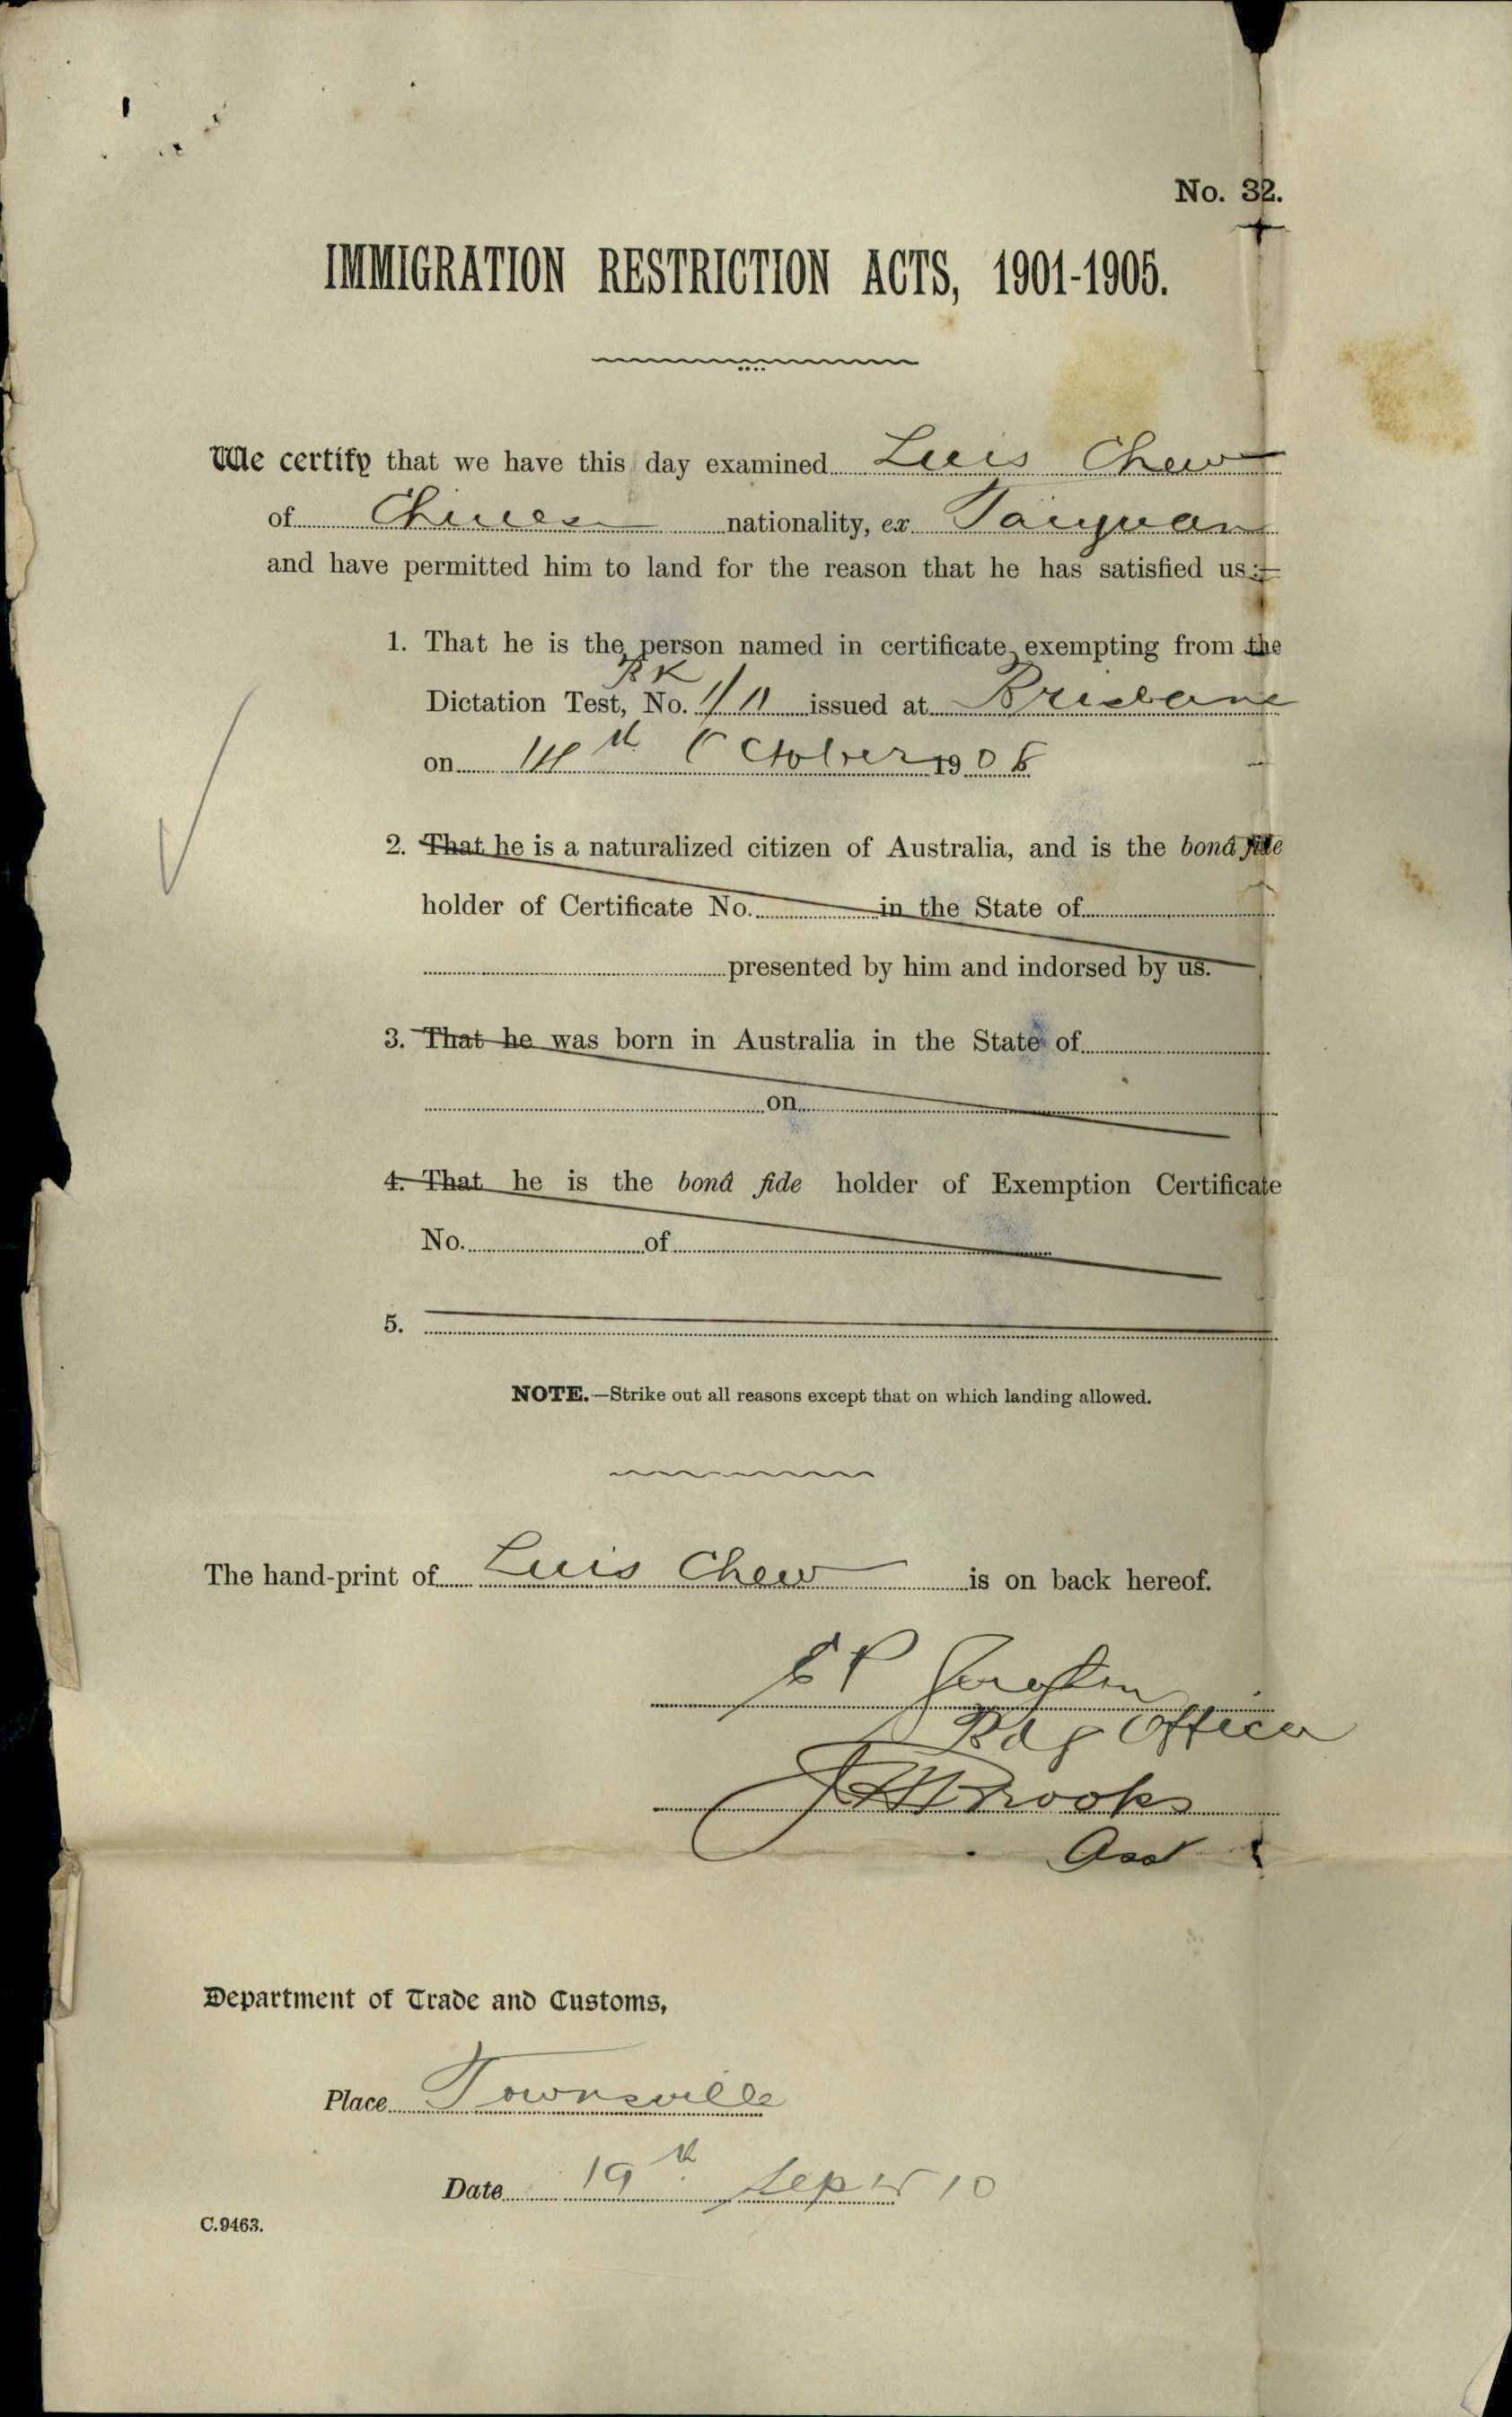 No. 32.
IMMIGRATION RESTRICTION ACTS, 1901-1905.
We certify that we have this day examined Luis Chew
of Chinese nationality, ex Taiyuan
and have permitted him to land for the reason that he has satisfied us:—
1. That he is the person named in certificate exempting from the
BK
Dictation Test, No. 1/11 issued at Brisbane
on 14th October 1908
2. That he is a naturalized citizen of Australia, and is the bonâ fide
holder of Certificate No. in the State of
presented by him and indorsed by us.
3. That he was born in Australia in the State of
on
4. That he is the bonâ fide holder of Exemption Certificate
No. of
5.
NOTE.—Strike out all reasons except that on which landing allowed.
The hand-print of Luis Chew is on back hereof.
E P
Bdg Officer
J H Brooks
Asst
Department of Trade and Customs,
Place Townsville
Date 19th Sept 10
C.9463.